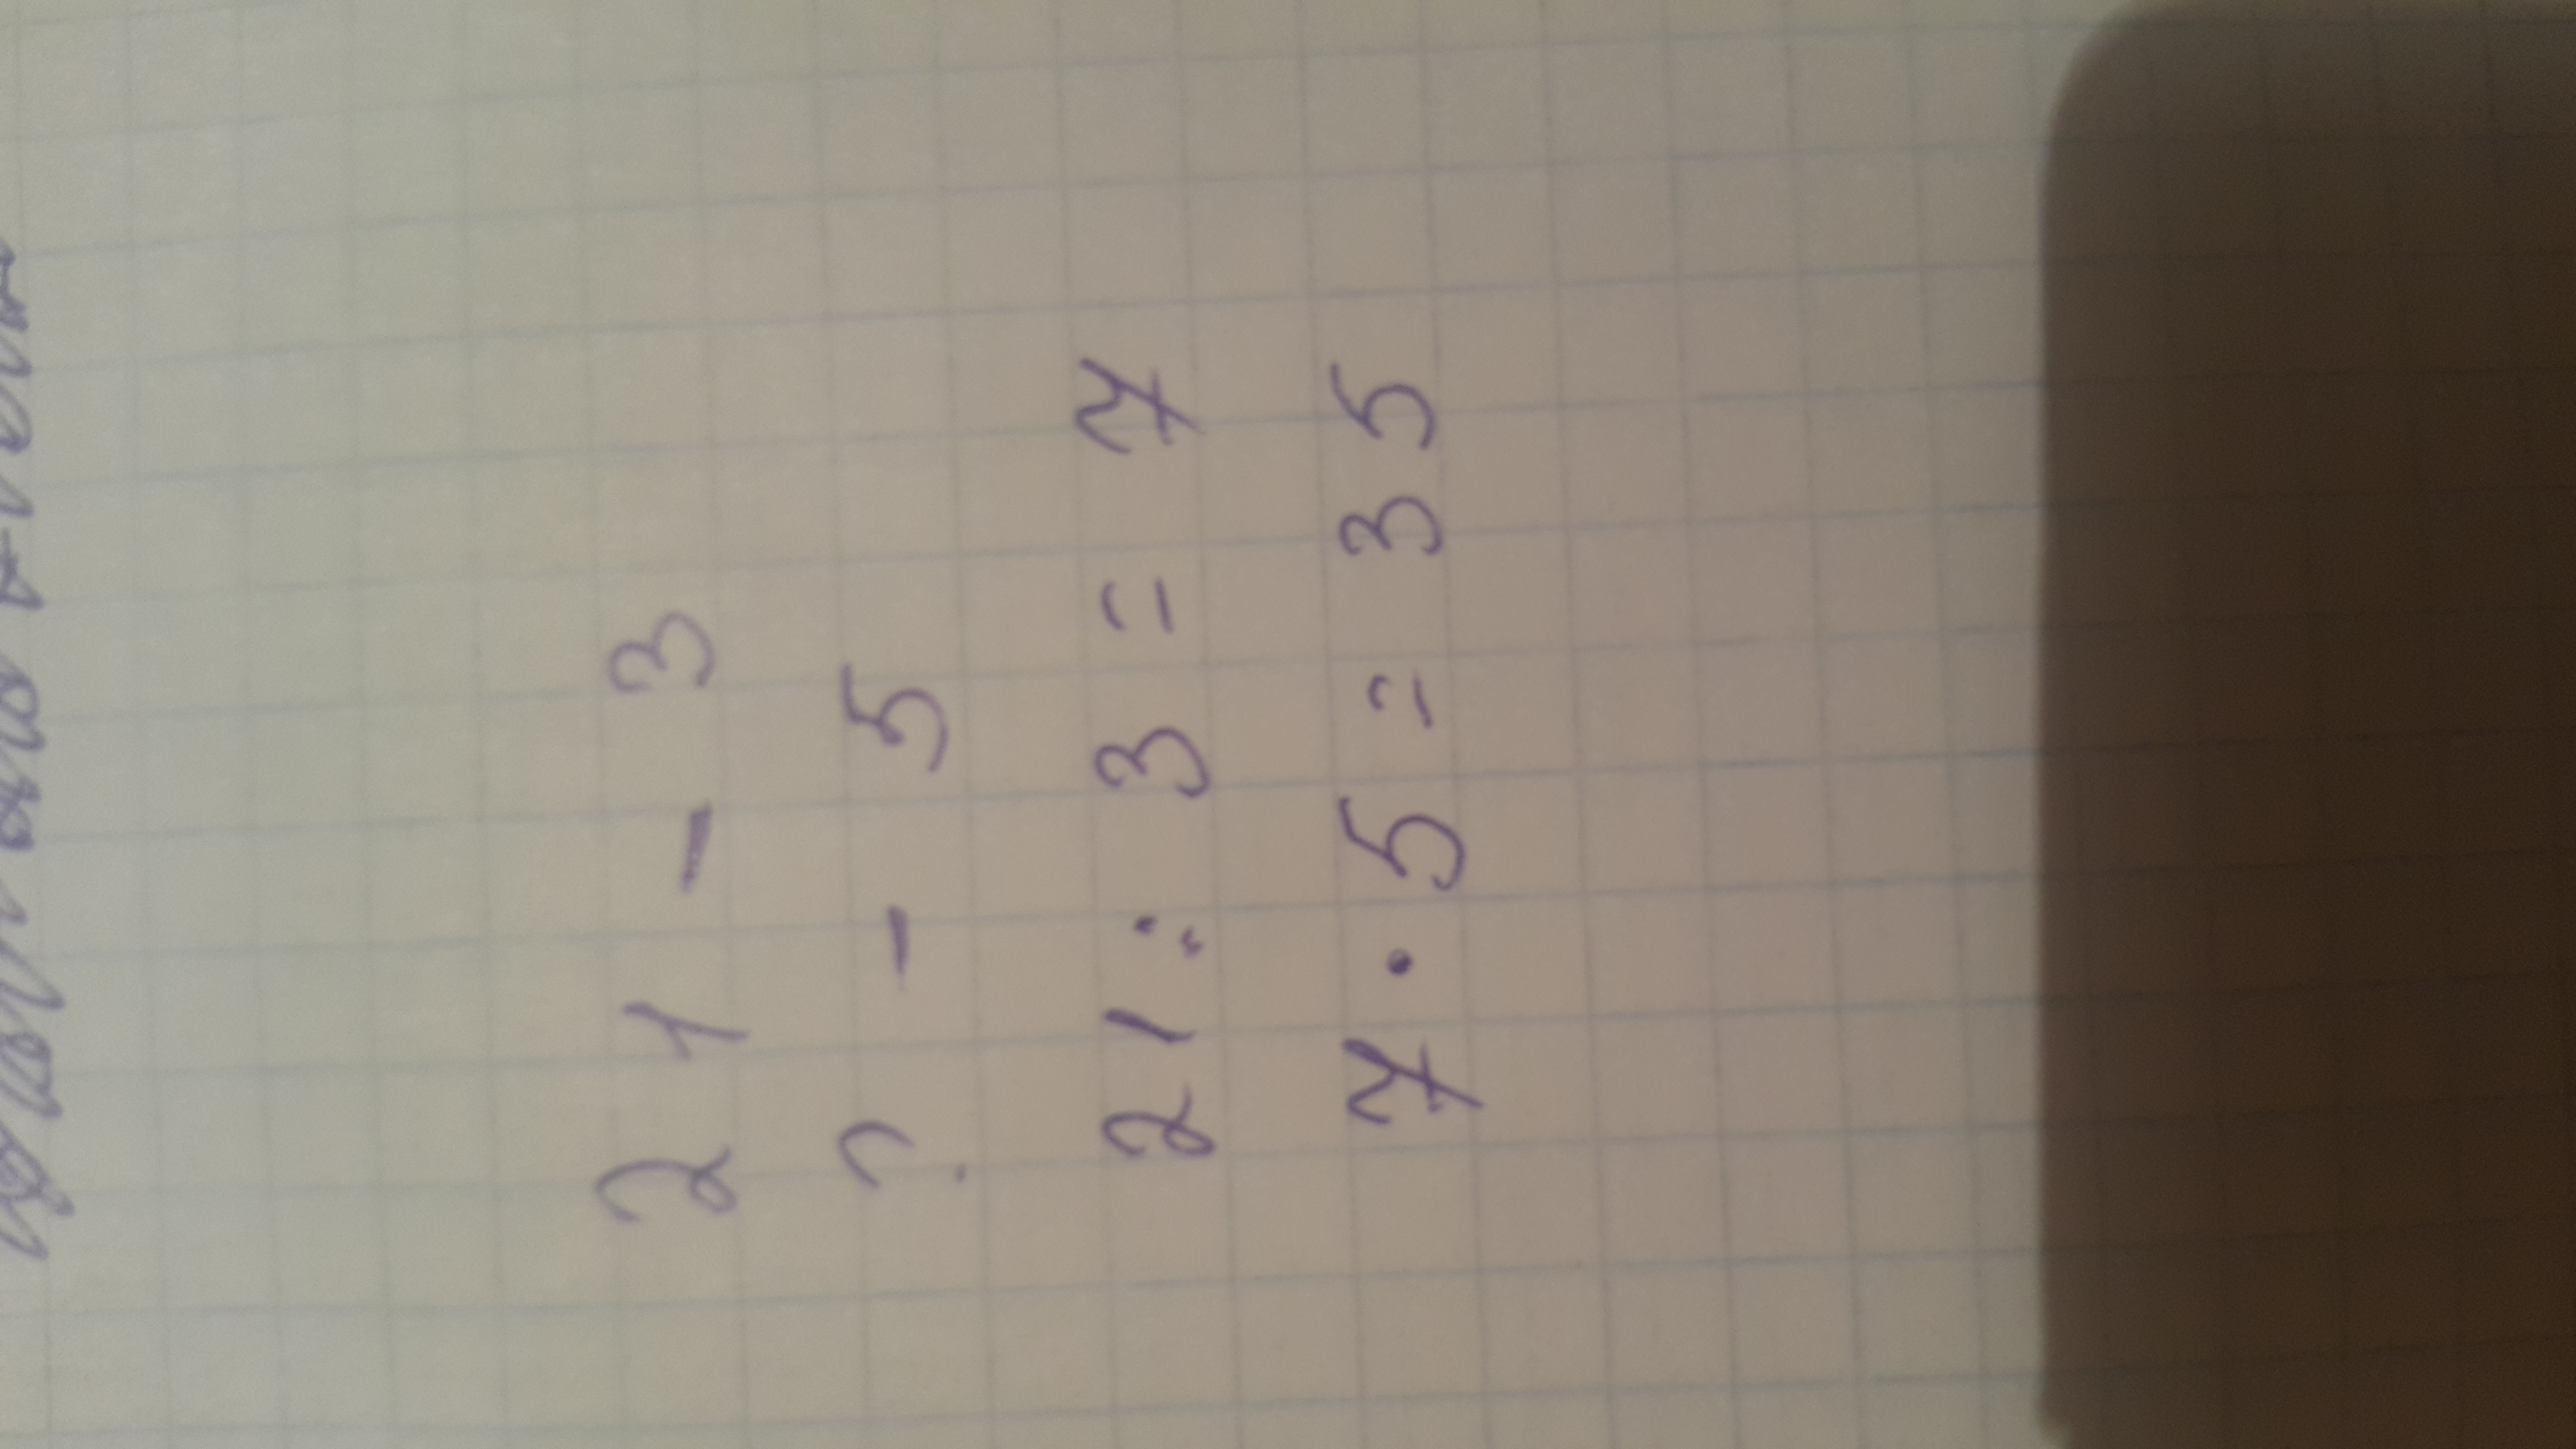 21 - 3
? - 5
21 : 3 = 7
7 · 5 = 35